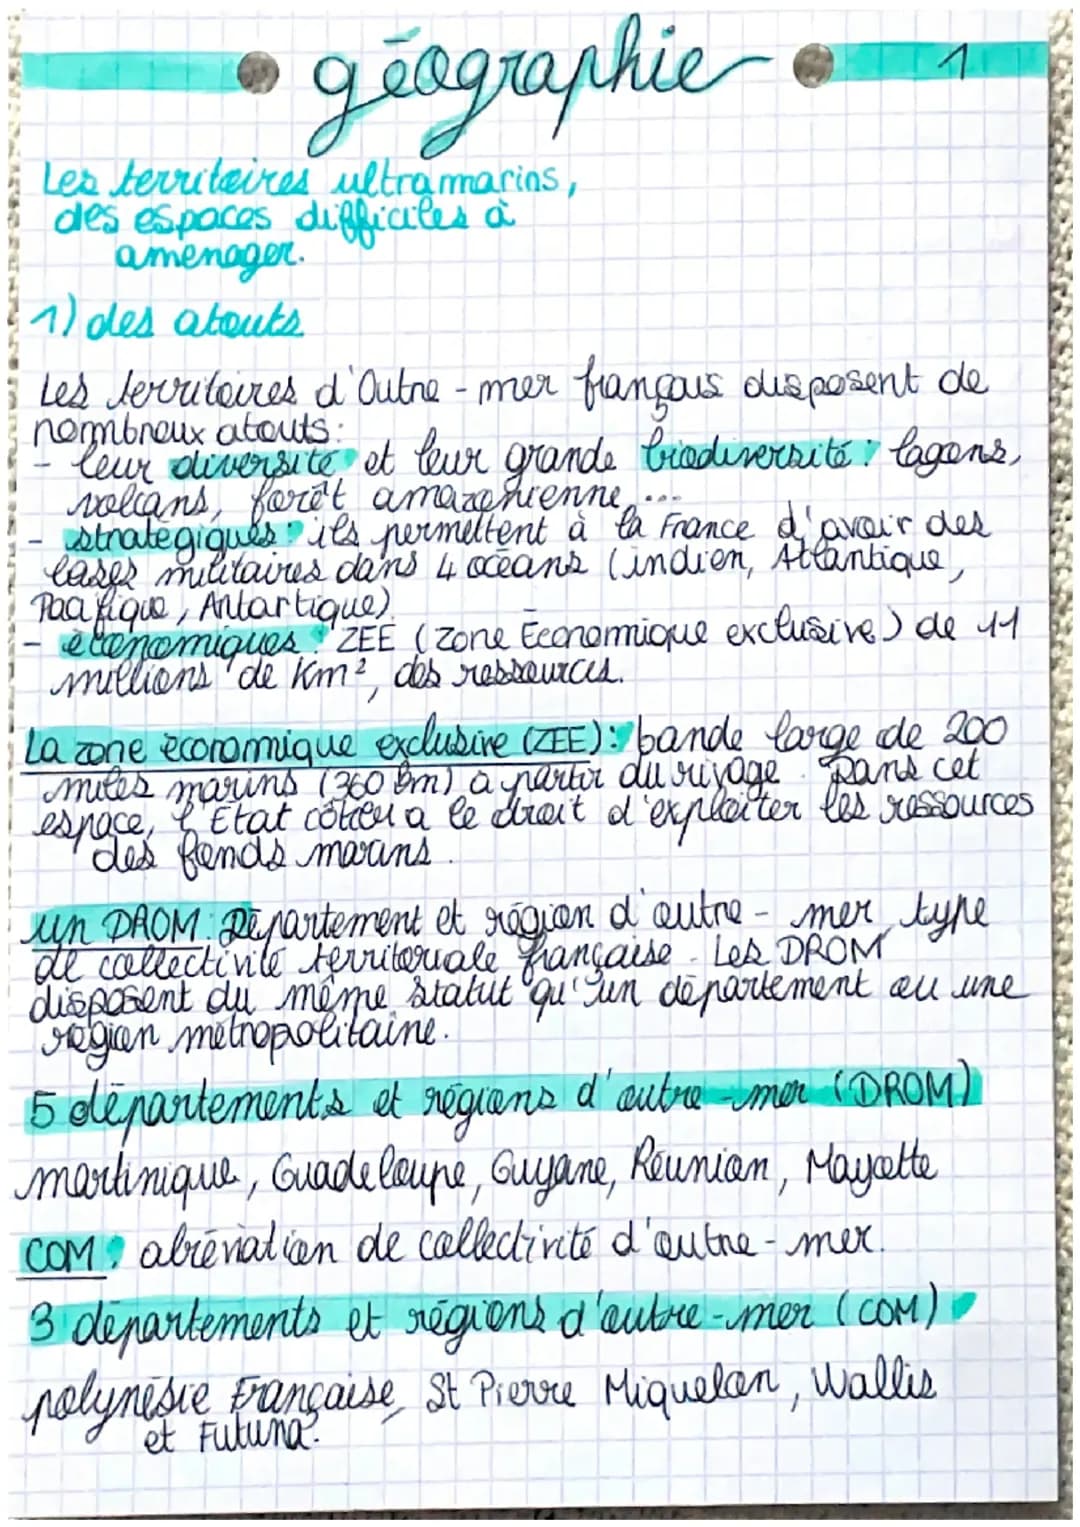 géographie
1
Les territoires ultramarins,
des espaces difficiles à
amenager.
1) des atouts
Les territoires d'Outre-mer français disposent de
nombreux atouts:
- leur diversité et leur grande biodiversité: lagons,
volcans, forêt amazonienne,...
- stratégiques: ils permettent à la France d'avoir des
bases militaires dans 4 océans (indien, Atlantique,
Pacifique, Antartique)
- économiques: ZEE (Zone Économique exclusive) de 11
millions de Km², des ressources.
La zone économique exclusive (ZEE): bande large de 200
miles marins (360 km) a partir du rivage. Dans cet
espace, l'Etat côtier a le droit d'exploiter les ressources
des fonds marins.
un DROM: Département et région d'outre-mer, type
de collectivité territoriale française. Les DROM
disposent du même statut qu'un département ou une
région métropolitaine.
5 départements et régions d'outre-mer (DROM)
martinique, Guadeloupe, Guyane, Réunion, Mayotte
COM: abréviation de collectivité d'outre-mer.
3 départements et régions d'outre-mer (COM)
polynésie Française, St Pierre Miquelon, Wallis
et Futuna.